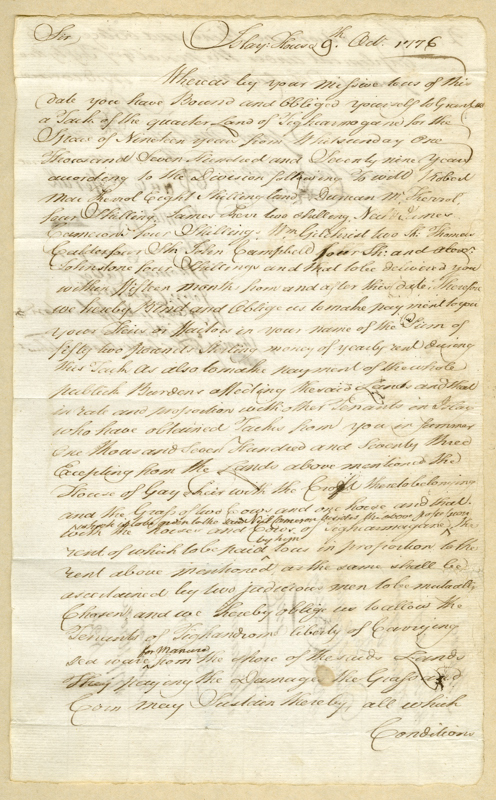 Sir Islay House 9th Octr. 1776
Whereas by your missive to us of this
date you have Bound and Obliged yourself to Grant us
a Tack of the quarter Land of Tighcarmogane for the
Space of Nineteen years from Whitsunday One
Thousand Seven Hundred and Seventy nine years
according to the Division following To Witt Robert
Mac Kerrol Eight Shilling land Duncan Mc Kerrol
four Shilling James Kerr two Shilling Neil & James
Camerons four Shillings Wm. Gilchrist two Sh. Thomas
Calder four Sh. John Campbell four Sh: and
Johnstone four Shillings and that to be delivered you
within fifteen month from and after this date: Therefore
we hereby Bind and Oblige us to make payment to you
your Heirs or Factors in your name of the Sum of
fifty two pounds Sterling money of yearly rent During
this Tack As also to make payment of the whole
publick Burdens affecting the said Lands and that
in rate and proportion with other Tenants in Islay
who have obtained Tacks from you in summer
One thousand Seven Hundred and Seventy three
Excepting from the Lands above mentioned the
House of Gay Neil with the Croft thereto belonging
and the Grass of two Cows and one horse and that
with the houses and of Tighcarmogane, the
rent of which to be paid to us in proportion to the
rent above mentioned as the same shall be
ascertained by two judicious men to be mutually
Chosen and we hereby oblige us to allow the
Tenants of Tighandrom liberty of Carrying
sea ware for Manure from the shore of the said Lands
They paying the Damage the Grass and
Corn may Sustain thereby, all which
Conditions